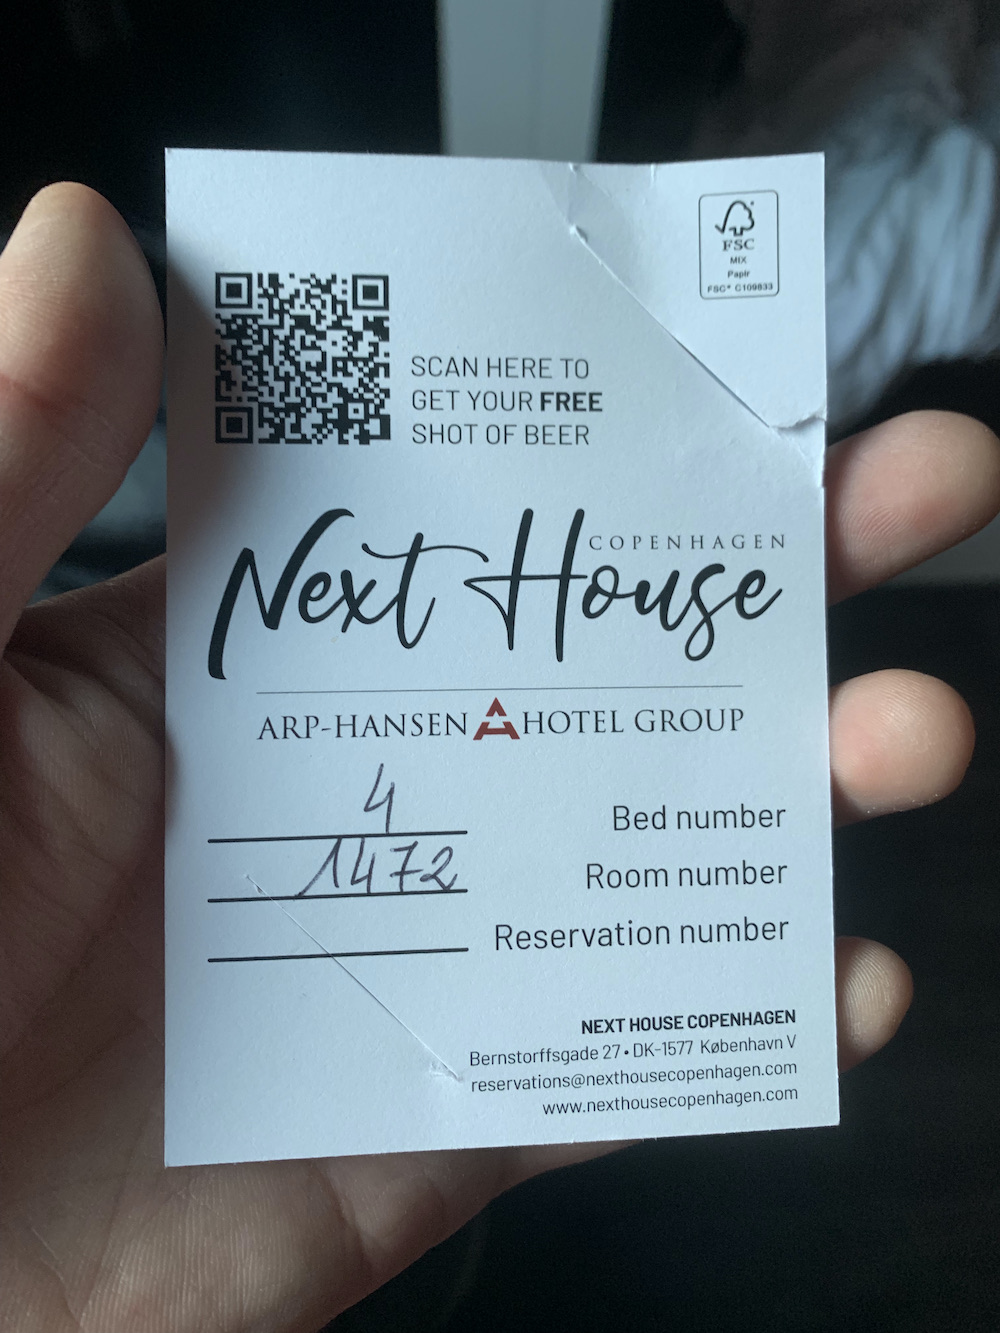 FSC
MIX
Papir
FSC® C109833
SCAN HERE TO
GET YOUR FREE
SHOT OF BEER
Next House
COPENHAGEN
ARP-HANSEN HOTEL GROUP
4 Bed number
1472 Room number
Reservation number
NEXT HOUSE COPENHAGEN
Bernstorffsgade 27 • DK-1577 København V
reservations@nexthousecopenhagen.com
www.nexthousecopenhagen.com